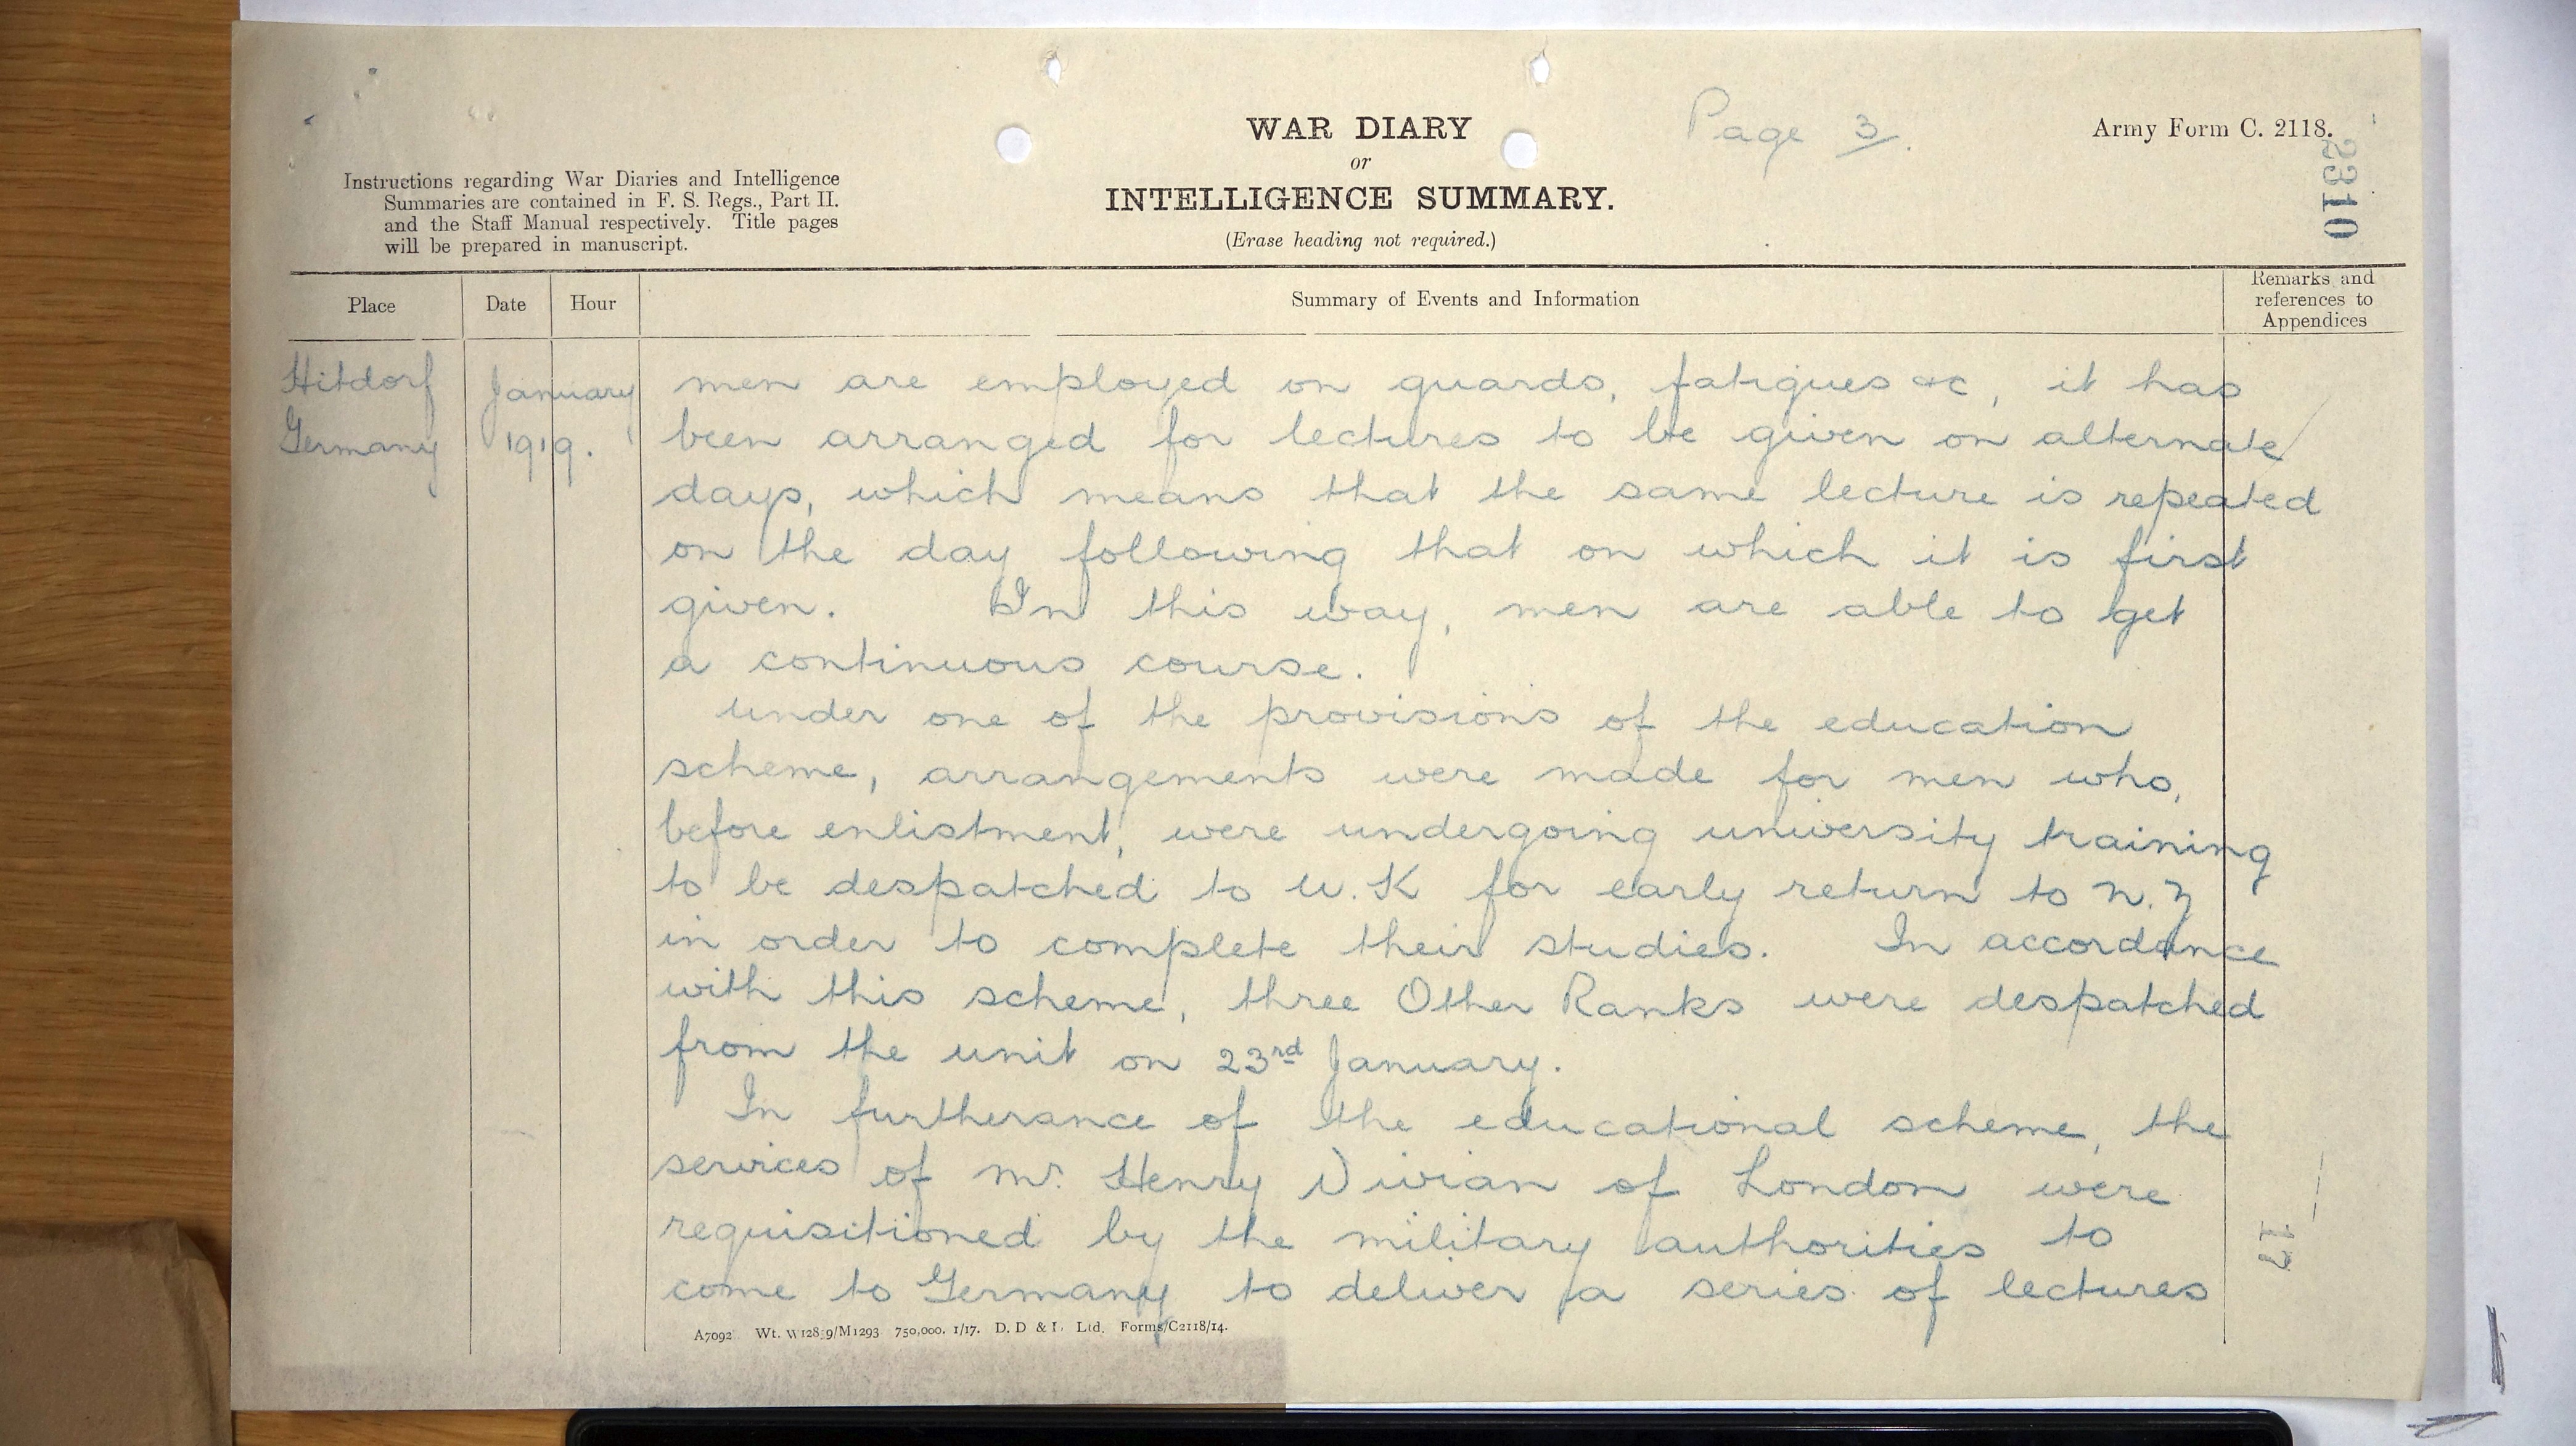 Page 3.
Army Form C. 2118.
2310
WAR DIARY
or
INTELLIGENCE SUMMARY.
(Erase heading not required.)
Instructions regarding War Diaries and Intelligence
Summaries are contained in F. S. Regs., Part II.
and the Staff Manual respectively. Title pages
will be prepared in manuscript.
Place
Date
Hour
Summary of Events and Information
Remarks and
references to
Appendices
Hitdorf
Germany
January
1919.
men are employed on guards, fatigues &c, it has
been arranged for lectures to be given on alternate
days, which means that the same lecture is repeated
on the day following that on which it is first
given. In this way, men are able to get
a continuous course.
under one of the provisions of the education
scheme, arrangements were made for men who,
before enlistment, were undergoing university training
to be despatched to U.K for early return to N.Z
in order to complete their studies. In accordance
with this scheme, three Other Ranks were despatched
from the unit on 23rd January.
In furtherance of the educational scheme, the
services of Mr. Henry Vivian of London were
requisitioned by the military authorities to
come to Germany to deliver a series of lectures
17
A7092 Wt. 750,000. 1/17. D. D & L. Ltd. Forms/C2118/14.